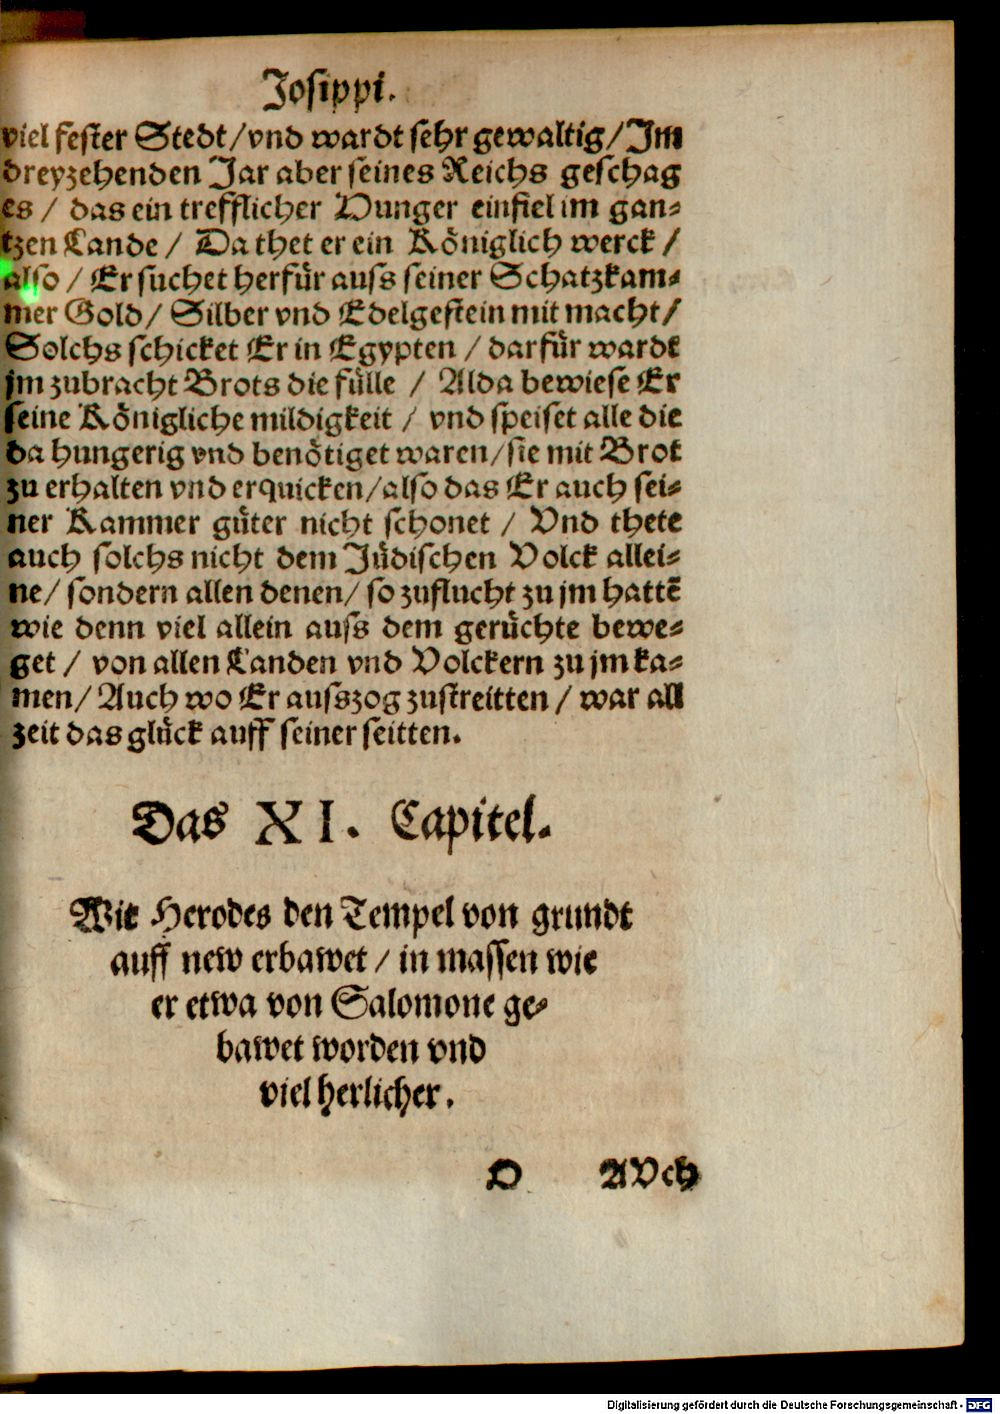 Josippi.
viel fester Stedt/vnd wardt sehr gewaltig/Im
dreyzehenden Jar aber seines Reichs geschag
es / das ein trefflicher Hunger einfiel im gan⸗
tzen Lande / Da thet er ein Königlich werck /
also / Er suchet herfür auss seiner Schatzkam⸗
mer Gold/ Silber vnd Edelgestein mit macht/
Solchs schicket Er in Egypten / darfür wardt
jm zubracht Brots die fülle / Alda bewiese Er
seine Königliche mildigkeit / vnd speiset alle die
da hungerig vnd benötiget waren/sie mit Brot
zu erhalten vnd erquicken/also das Er auch sei⸗
ner Kammer güter nicht schonet / Vnd thete
auch solchs nicht dem Jüdischen Volck allei⸗
ne/ sondern allen denen/ so zuflucht zu jm hattē
wie denn viel allein auss dem gerüchte bewe⸗
get / von allen Landen vnd Volckern zu jm ka⸗
men/ Auch wo Er ausszog zustreitten / war all
zeit das glück auff seiner seitten.
Das XI. Capitel.
Wie Herodes den Tempel von grundt
auff new erbawet / in massen wie
er etwa von Salomone ge⸗
bawet worden vnd
viel herlicher.
O AVch
Digitalisierung gefördert durch die Deutsche Forschungsgemeinschaft - DFG